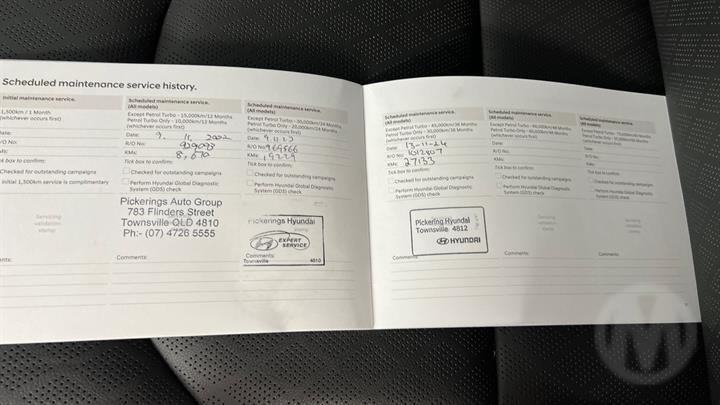 Scheduled maintenance service history.
Initial maintenance service.
1,500km / 1 Month
(whichever occurs first)
Date:
R/O No:
KMs:
Tick box to confirm:
Checked for outstanding campaigns
Initial 1,500km service is complimentary
Servicing
validation
stamp
Comments:
Scheduled maintenance service.
(All models)
Except Petrol Turbo - 15,000km/12 Months
Petrol Turbo Only - 10,000km/12 Months
(whichever occurs first)
Date: 9. 2022
R/O No: 929093
KMs: 8,670
Tick box to confirm:
Checked for outstanding campaigns
Perform Hyundai Global Diagnostic
System (GDS) check
Pickerings Auto Group
783 Flinders Street
Townsville QLD 4810
Ph:- (07) 4726 5555
Comments:
Scheduled maintenance service.
(All models)
Except Petrol Turbo - 30,000km/24 Months
Petrol Turbo Only - 20,000km/24 Months
(whichever occurs first)
Date: 9.11.23
R/O No: 969566
KMs: 15229
Tick box to confirm:
Checked for outstanding campaigns
Perform Hyundai Global Diagnostic
System (GDS) check
Pickerings Hyundai
stamp
EXPERT
SERVICE
Comments:
Townsville 4810
Scheduled maintenance service.
(All models)
Except Petrol Turbo - 45,000km/36 Months
Petrol Turbo Only - 30,000km/36 Months
(whichever occurs first)
Date: 13-11-24
R/O No: 1012807
KMs: 27133
Tick box to confirm:
Checked for outstanding campaigns
Perform Hyundai Global Diagnostic
System (GDS) check
Pickering Hyundai
Townsville 4812
HYUNDAI
Comments:
Scheduled maintenance service.
(All models)
Except Petrol Turbo - 60,000km/48 Months
Petrol Turbo Only - 40,000km/48 Months
(whichever occurs first)
Date:
R/O No:
KMs:
Tick box to confirm:
Checked for outstanding campaigns
Perform Hyundai Global Diagnostic
System (GDS) check
Servicing
validation
stamp
Comments:
Scheduled maintenance service.
(All models)
(whichever occurs first)
Date:
R/O No:
KMs:
Tick box to confirm:
Checked for outstanding campaigns
Perform Hyundai Global Diagnostic
System (GDS) check
Servicing
validation
stamp
Comments:
M